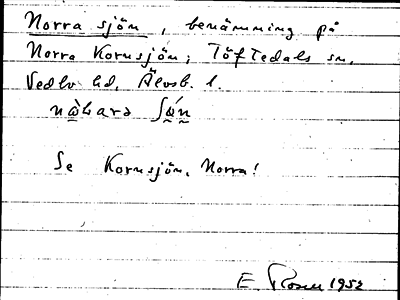 Norra sjön, benämning på
Norra Kornsjön; Töftedals sn,
Vedbo hd, Älvsb. l.
Se Kornsjön, Norra!
E. 1952